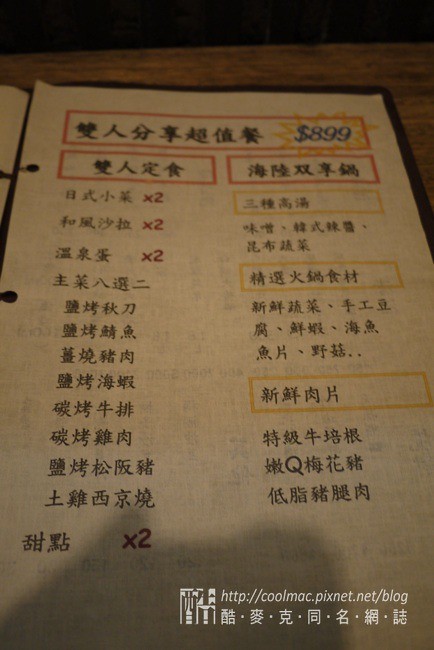 雙人分享超值餐 $899
雙人定食
日式小菜 x2
和風沙拉 x2
溫泉蛋 x2
主菜八選二
鹽烤秋刀
鹽烤鯖魚
薑燒豬肉
鹽烤海蝦
碳烤牛排
碳烤雞肉
鹽烤松阪豬
土雞西京燒
甜點 x2
海陸双享鍋
三種高湯
味噌、韓式辣醬、
昆布蔬菜
精選火鍋食材
新鮮蔬菜、手工豆
腐、鮮蝦、海魚
魚片、野菇..
新鮮肉片
特級牛培根
嫩Q梅花豬
低脂豬腿肉
http://coolmac.pixnet.net/blog
酷・麥・克・同・名・網・誌